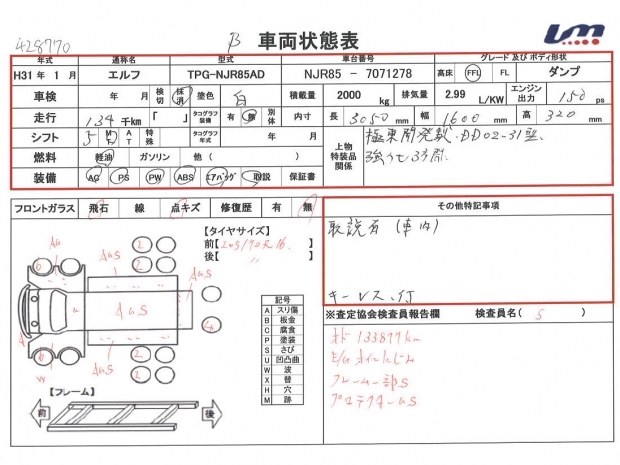 428770
β
車両状態表
Um
年式 通称名 型式 車台番号 グレード 及び ボディ形状
H31 年 1 月 エルフ TPG-NJR85AD NJR85 - 7071278 高床 FFL FL ダンプ
車検 年 月 検切 抹消 塗色 白 積載量 2000 kg 排気量 2.99 L/KW エンジン出力 150 ps
走行 134 千km 「 」 タコグラフ装備 有 無 別体 内寸 長 3050 mm 幅 1600 mm 高 320 mm
シフト 5 MT AT 特殊 タコグラフ年式 年 月 上物特装品関係 極東開発製・DD02-31型
燃料 軽油 ガソリン 他 ( ) 強化 3方開
装備 AC PS PW ABS エアバッグ 取説 保証書
フロントガラス 飛石 線 点キズ 修復歴 有 無 その他特記事項
【タイヤサイズ】
前【205/70R16】
後【 〃 】
取説有 (車内)
キーレス付
AU
AUS
AUS
AUS
W
0
2
2
2
2
4
6
u
記号
A スリ傷
B 板金
C 腐食
P 塗装
S さび
U 凹凸曲
W 波
X 替
H 穴
M 跡
※査定協会検査員報告欄 検査員名( S )
オド 133877km
E/G オイルにじみ
フレーム一部S
プロテクターUS
【フレーム】
前
後